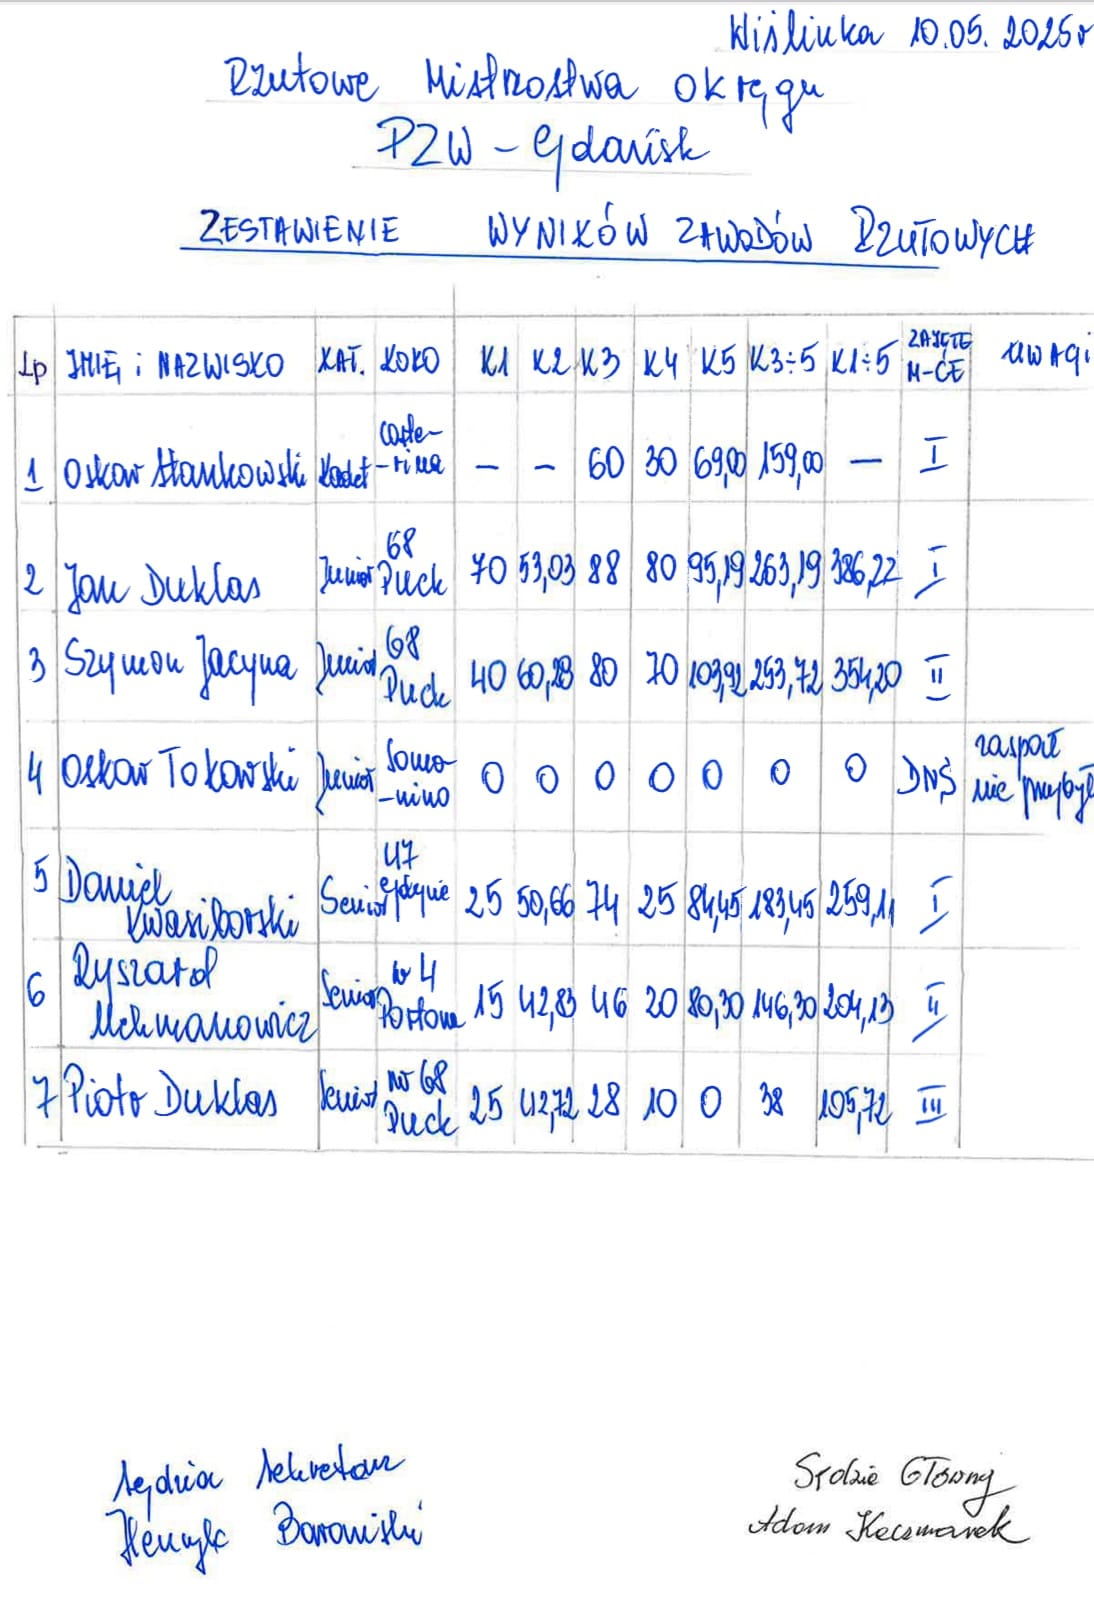 Wiślinka 10.05.2025r
Rzutowe Mistrzostwa okręgu
PZW - Gdańsk
ZESTAWIENIE WYNIKÓW ZAWODÓW RZUTOWYCH
Lp IMIĘ i NAZWISKO KAT. KOŁO K1 K2 K3 K4 K5 K3÷5 K1÷5 ZAJĘTE M-CE uwagi
1 Oskar Stankowski Kadet - - 60 30 69,00 159,00 — I
2 Jan Duklas Junior 68 Puck 70 53,03 88 80 95,19 263,19 386,22 I
3 Szymon Jacyna Junior 68 Puck 40 60,28 80 70 103,92 253,72 354,20 II
4 Oskar Tokarski Junior Somo-nino 0 0 0 0 0 0 0 DNS nie przybył
5 Daniel Kwasiborski Senior 47 Gdynia 25 50,66 74 25 84,45 183,45 259,11 I
6 Ryszard Senior nr 4 Portowe 15 42,83 46 20 80,30 146,30 204,13 II
7 Piotr Duklas Senior nr 68 Puck 25 42,72 28 10 0 38 105,72 III
Sędzia Sekretarz
Henryk Baroniski
Sędzia Główny
Adam Kaczmarek